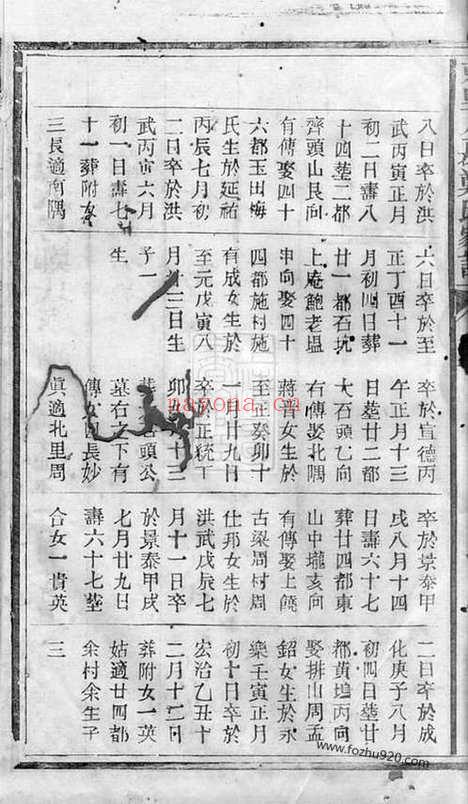 八日卒於洪
武丙寅正月
初二日壽八
十四塟二都
齊頭山艮向
有傳娶四十
六都玉田梅
氏生於延祐
丙辰七月初
二日卒於洪
武丙寅六月
初一日壽七
十一葬附女
三長適南隅
六日卒於至
正丁酉十一
月初四日葬
廿一都石坑
上庵鮑老塭
申向娶四十
四都施村施
有成女生於
至元戊寅八
月廿三日生
子一
生
卒於宣德丙
午正月十三
日塟廿二都
大石頭乙向
右傳娶北隅
蔣祥女生於
至正癸卯十
一月廿九日
卒於正統丁
卯 十三
頭公
墓右之下有
傳女四長妙
眞適北里周
卒於景泰甲
戌八月十四
日壽六十七
葬廿四都東
山中壠亥向
有傳娶上饒
古梁周村周
仕邦女生於
洪武戊辰七
月十一日卒
於景泰甲戌
七月廿九日
壽六十七塟
合女一貴英
二日卒於成
化庚子八月
初四日塟廿
都黃塢丙向
娶排山周孟
銘女生於永
樂壬寅正月
初十日卒於
宏治乙丑十
二月十二日
葬附女一英
姑適廿四都
余村余生子
三
nayona.cn
www.fozhu920.com